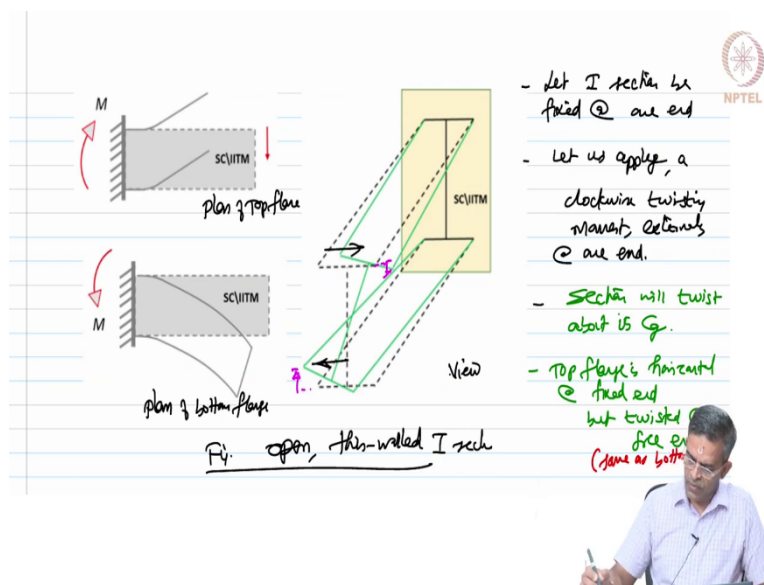 M
SC\IITM
Plan of Top flange
SC\IITM
M
plan of bottom flange
SC\IITM
View
Fig. open, thin-walled I sech
NPTEL
- Let I section be
fixed @ one end
- Let us apply, a
clockwise twisting
moment, externally
@ one end.
- Section will twist
about its Cg.
- Top flange is horizontal
@ fixed end
but twisted @
free
(same as bott